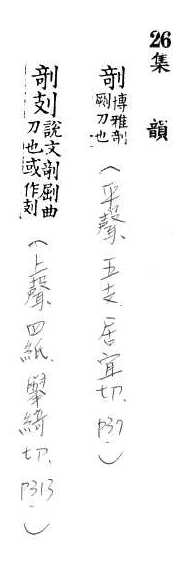 26 集韻
剞 博雅剞
劂刀也
(平聲 五支 居宜切. p37.)
剞 說文剞劂曲
刀也或作
(上聲 四紙 擧綺切. p313.)